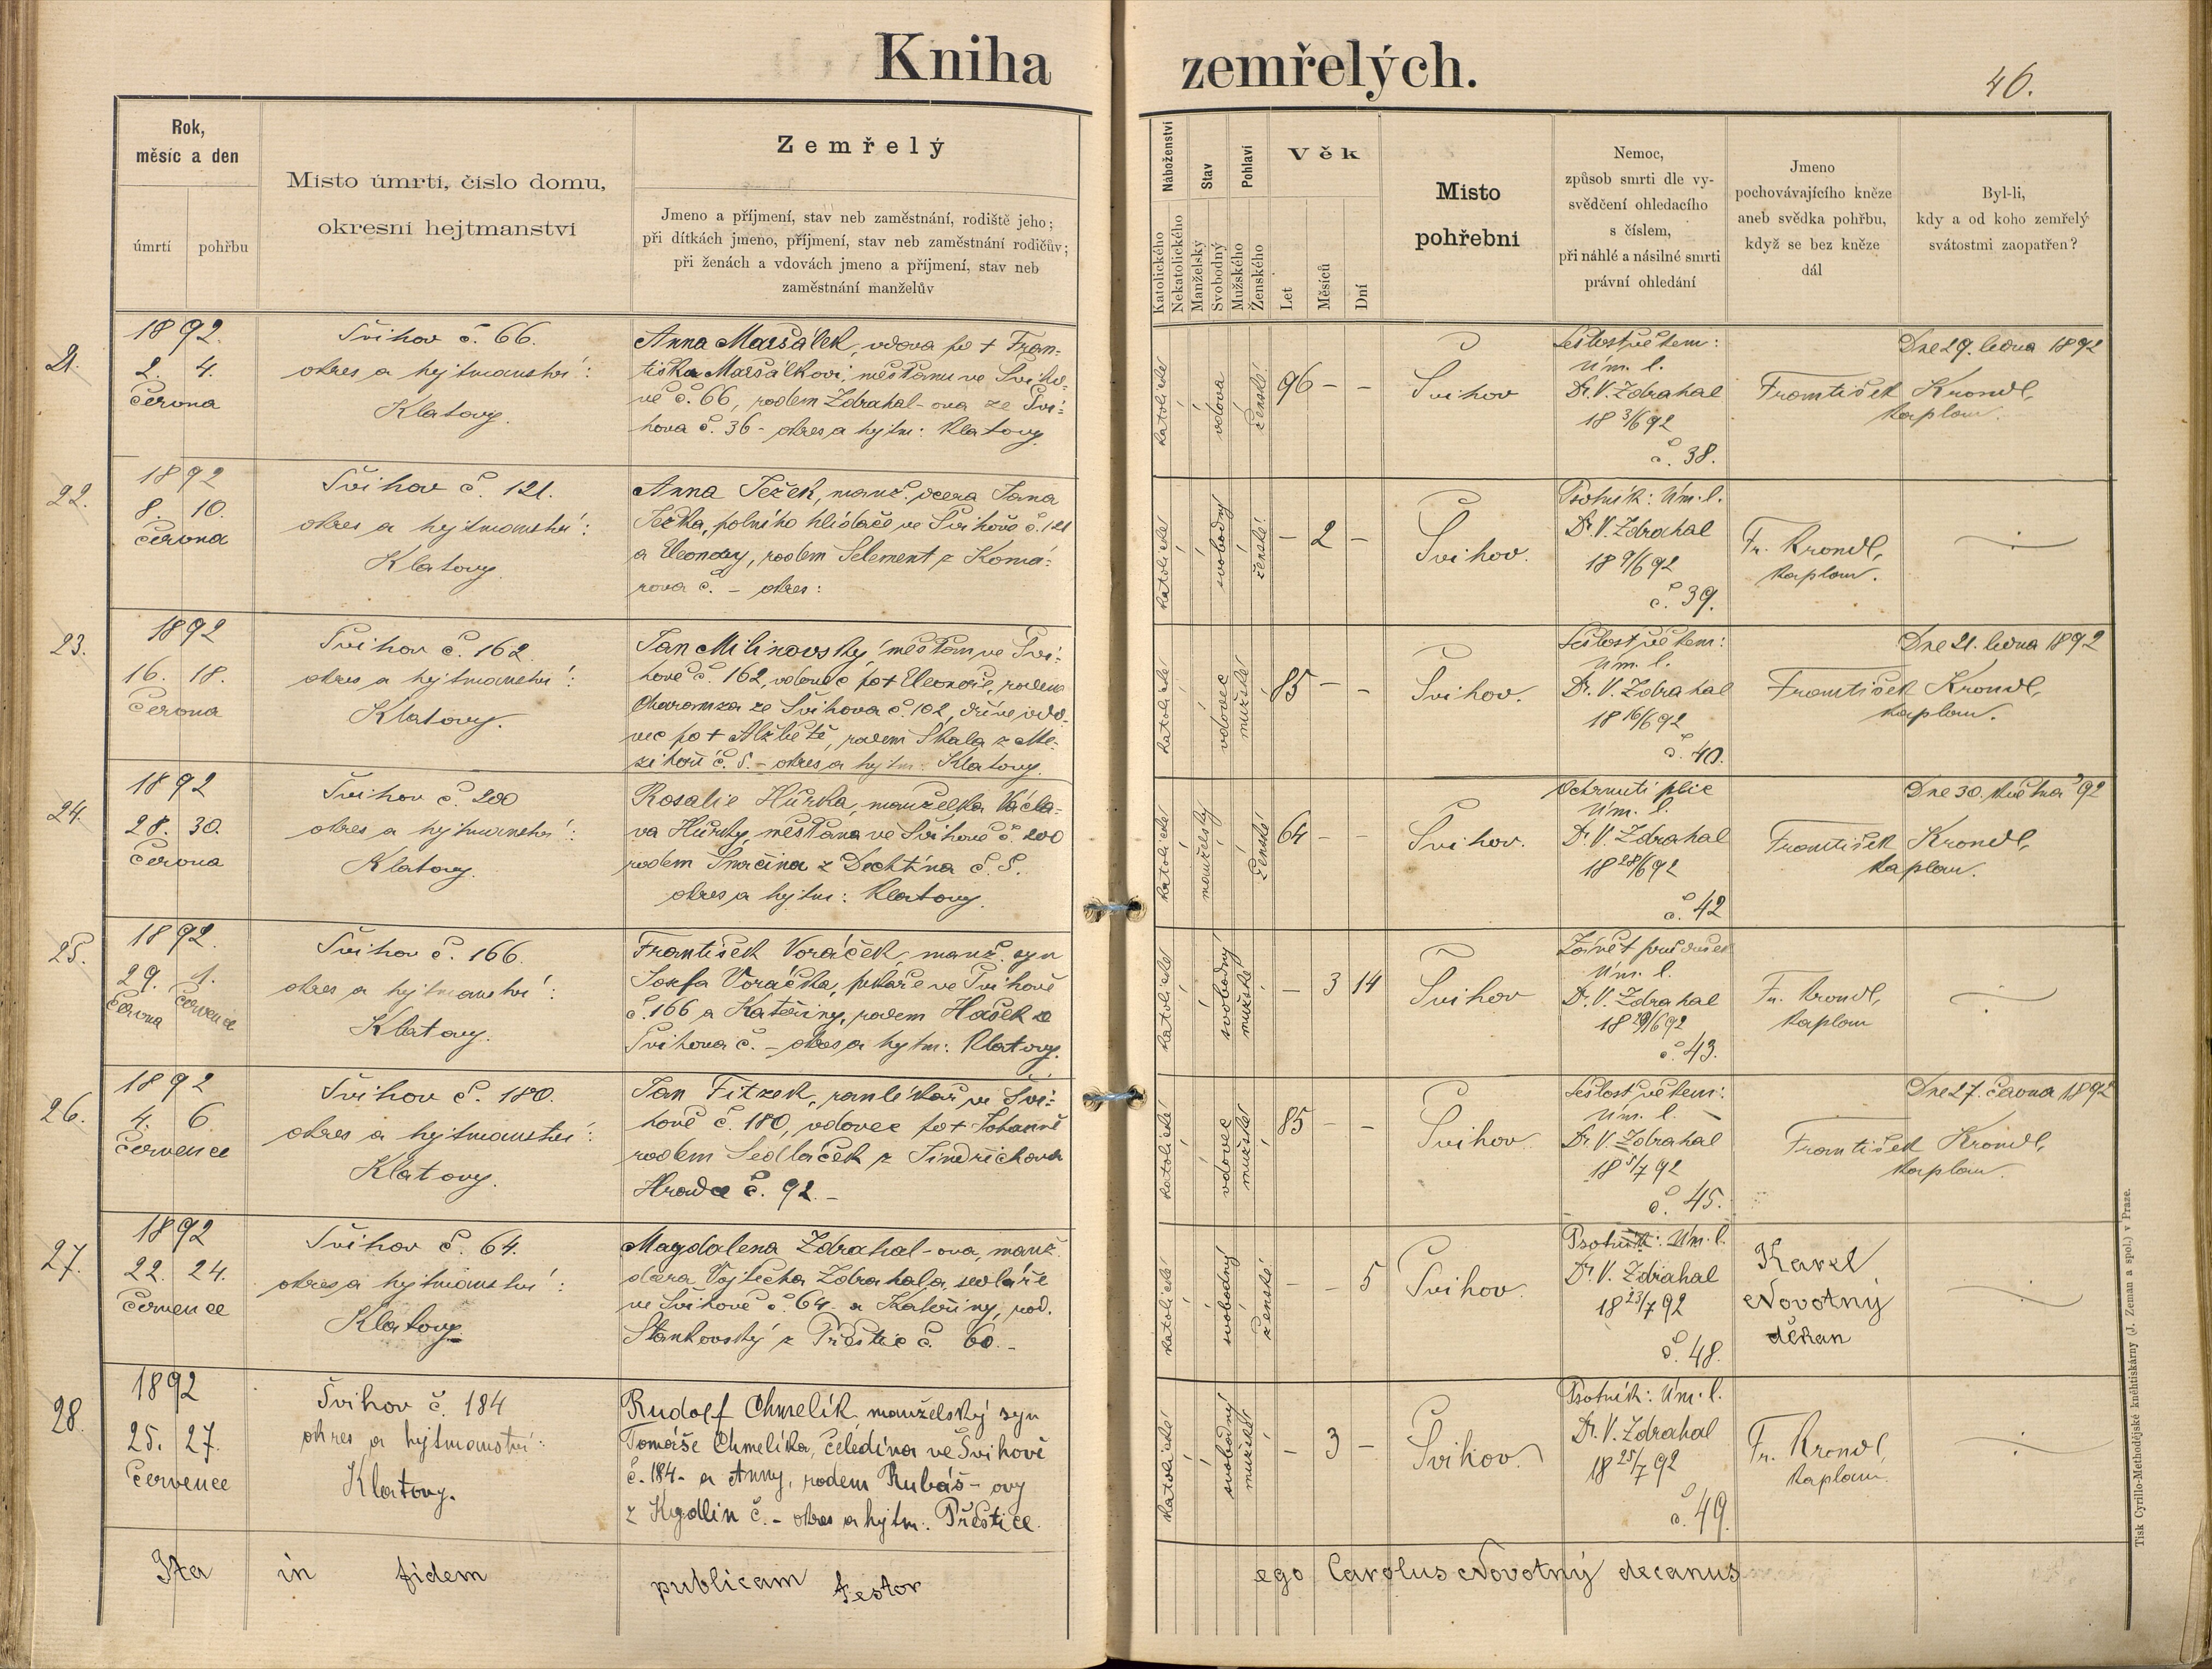 Kniha zemřelých.
46.
Rok,
měsíc a den
úmrtí
pohřbu
Místo úmrtí, číslo domu,
okresní hejtmanství
Zemřelý
Jmeno a příjmení, stav neb zaměstnání, rodiště jeho;
při dítkách jmeno, příjmení, stav neb zaměstnání rodičův;
při ženách a vdovách jmeno a příjmení, stav neb
zaměstnání manželův
Náboženství
Katolického
Nekatolického
Stav
Manželský
Svobodný
Pohlaví
Mužského
Ženského
Věk
Let
Měsíců
Dní
Místo
pohřební
Nemoc,
způsob smrti dle vy-
svědčení ohledacího
s číslem,
při náhlé a násilné smrti
právní ohledání
Jmeno
pochovávajícího kněze
aneb svědka pohřbu,
když se bez kněze
dál
Byl-li,
kdy a od koho zemřelý
svátostmi zaopatřen?
21.
1892.
2. 4.
června
Švihov č. 66.
okres a hejtmanství:
Klatovy.
Anna Maršálek, vdova po † Fran-
tišku Maršálkovi, měšťanu ve Šviho-
vě č. 66, rodem Zdrahal-ova ze Švi-
hova č. 36 - okres a hejtm: Klatovy.
katolické
vdova
ženské
96 - -
Švihov
Sešlost věkem:
Úm. l.
Dr. V. Zdrahal
18 3/6 92
č. 38.
Dne 29. ledna 1892
František Krondl,
kaplan.
22.
1892
8. 10.
června
Švihov č. 121.
okres a hejtmanství:
Klatovy.
Anna Ježek, manž. dcera Jana
Ježka, polního hlídače ve Švihově č. 121
a Eleonory, rodem Selement z Komá-
rova č. - okres:
katolické
svobodný
ženské
- 2 -
Švihov.
Psotník: Úm. l.
Dr. V. Zdrahal
18 9/6 92
č. 39.
Fr. Krondl,
kaplan.
23.
1892
16. 18.
června
Švihov č. 162.
okres a hejtmanství:
Klatovy.
Jan Milinovský, měšťan ve Švi-
hově č. 162, vdovec po † Eleonoře, rodem
Charamza ze Švihova č. 102, dříve vdo-
vec po † Alžbětě, rodem Skala z Me-
zihoří č. 5. - okres a hejtm. Klatovy.
katolické
vdovec
mužské
85 - -
Švihov.
Sešlost věkem:
Úm. l.
Dr. V. Zdrahal
18 16/6 92
č. 40.
Dne 21. ledna 1892
František Krondl,
kaplan.
24.
1892
28. 30.
června
Švihov č. 200
okres a hejtmanství:
Klatovy.
Rosalie Hůrka, manželka Václa-
va Hůrky, měšťana ve Švihově č. 200
rodem Smrčina z Dechtína č. 5.
okres a hejtm: Klatovy.
katolické
manželský
ženské
64 - -
Švihov.
Ochrnutí plic
Úm. l.
Dr. V. Zdrahal
18 28/6 92
č. 42
Dne 30. května '92
František Krondl,
kaplan.
25.
1892.
29. 1.
června července
Švihov č. 166.
okres a hejtmanství:
Klatovy.
František Voráček, manž. syn
Josefa Voráčka, pekaře ve Švihově
č. 166 a Kateřiny, rodem Hašek ze
Švihova č. - okres a hejtm: Klatovy.
katolické
svobodný
mužské
- 3 14
Švihov
Zánět průdušek
Úm. l.
Dr. V. Zdrahal
18 29/6 92
č. 43.
Fr. Krondl,
kaplan
26.
1892
4. 6
července
Švihov č. 180.
okres a hejtmanství:
Klatovy.
Jan Fitzek, ranlékař ve Švi-
hově č. 180, vdovec po † Johanně
rodem Sedláček z Jindřichova
Hradce č. 92. -
katolické
vdovec
mužské
85 - -
Švihov
Sešlost věkem:
Úm. l.
Dr. V. Zdrahal
18 5/7 92
č. 45.
Dne 27. června 1892
František Krondl,
kaplan.
27.
1892
22. 24.
července
Švihov č. 64.
okres a hejtmanství:
Klatovy
Magdalena Zdrahal-ova, manž.
dcera Vojtěcha Zdrahala, sedláře
ve Švihově č. 64. a Kateřiny, rod.
Stankovský z Přeštic č. 60. -
katolické
svobodný
ženské
- - 5
Švihov.
Psotník: Úm. l.
Dr. V. Zdrahal
18 23/7 92
č. 48.
Karel
Novotný
děkan
28.
1892
25. 27.
července
Švihov č. 184
okres a hejtmanství:
Klatovy.
Rudolf Chmelík, manželský syn
Tomáše Chmelíka, čeledína ve Švihově
č. 184 - a Anny, rodem Rubáš-ovy
z Kydlin č. - okres a hejtm: Přeštice.
katolické
svobodný
mužské
- 3 -
Švihov.
Psotník: Úm. l.
Dr. V. Zdrahal
18 25/7 92
č. 49.
Fr. Krondl,
kaplan.
Ita in fidem publicam testor ego Carolus Novotný decanus
Tisk Cyrillo-Methodějské kněhtiskárny (J. Zeman a spol.) v Praze.